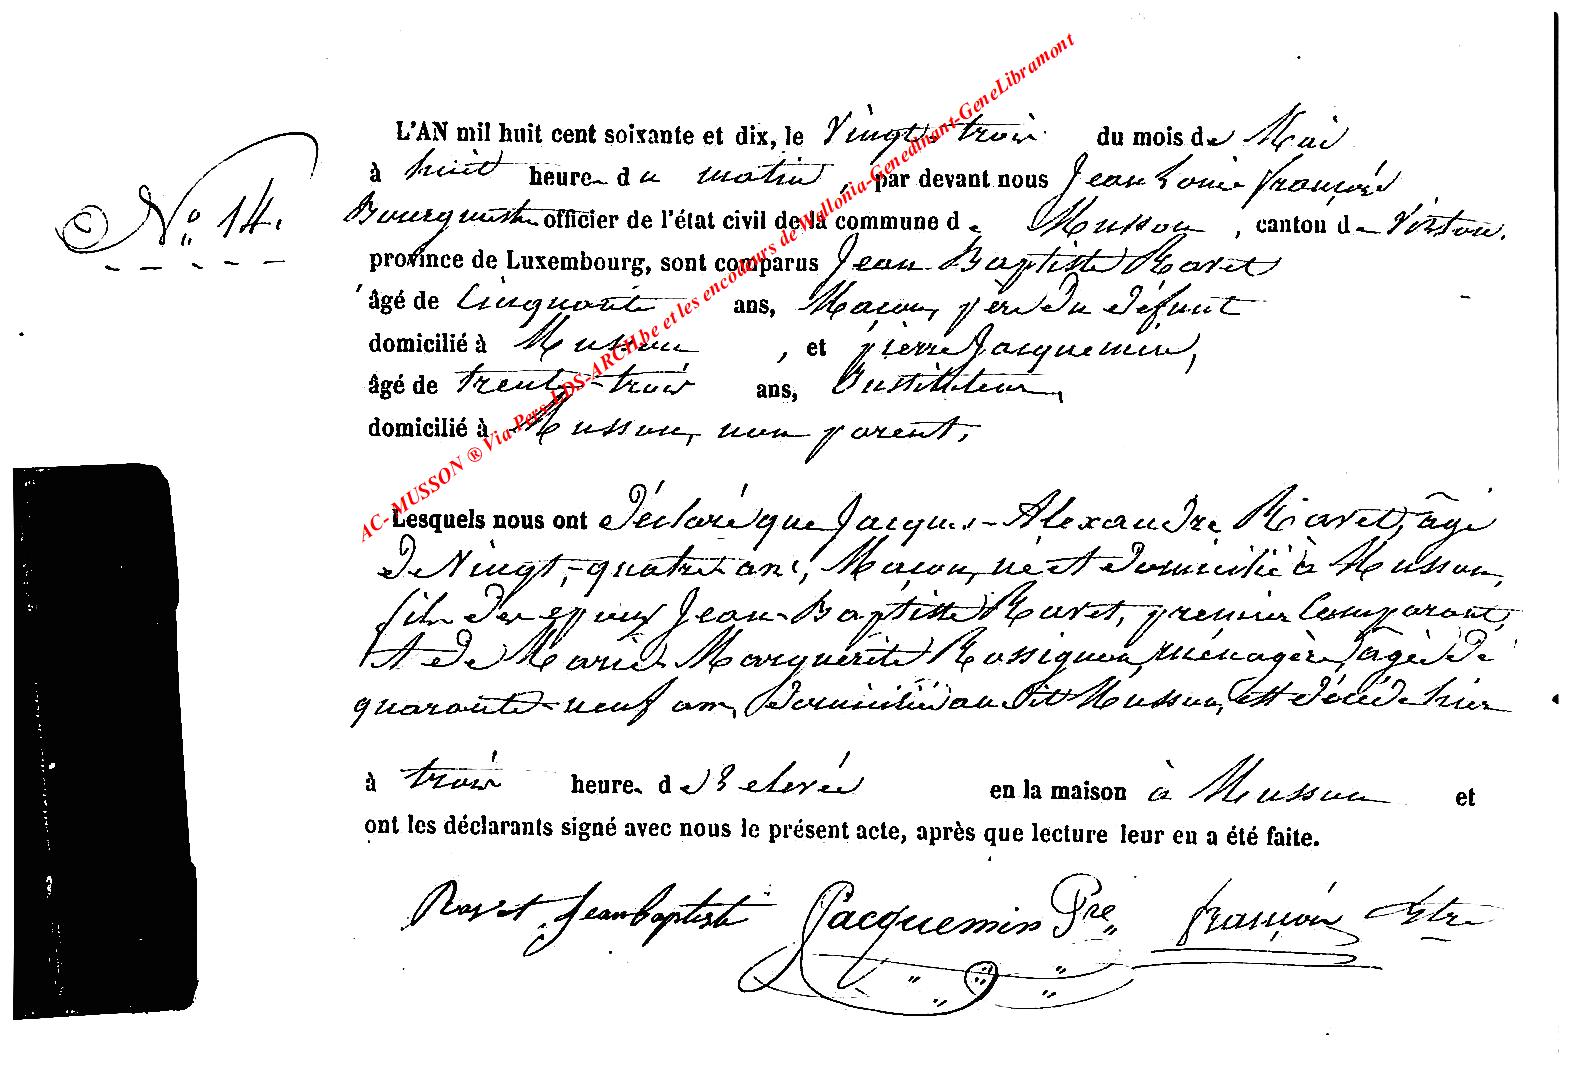 N° 14.
L'AN mil huit cent soixante et dix, le Vingt-trois du mois de Mai
à huit heure du matin, par devant nous Jean Louis françois
Bourgmestre officier de l'état civil de la commune de Musson, canton de Virton.
province de Luxembourg, sont comparus Jean Baptiste Ravet
âgé de Cinquante ans, Maçon, père du défunt
domicilié à Musson, et pierre Jacquemin,
âgé de trente-trois ans, Instituteur,
domicilié à Musson, non parent,
AC-MUSSON ® Via Pers-LDS-ARCH.be et les encodeurs de Wallonia-Genedinant-GeneLibramont
Lesquels nous ont déclaré que Jacques-Alexandre Ravet, âgé
de Vingt-quatre ans, Maçon, né et domicilié à Musson,
fils des époux Jean-Baptiste Ravet, premier Comparant,
et de Marie Marguérite Rossignon, ménagère, âgée de
quarante-neuf ans, domiciliés au dit Musson, est décédé hier
à trois heure de Relevée en la maison à Musson et
ont les déclarants signé avec nous le présent acte, après que lecture leur en a été faite.
Ravet Jean baptiste Jacquemin Pre françois